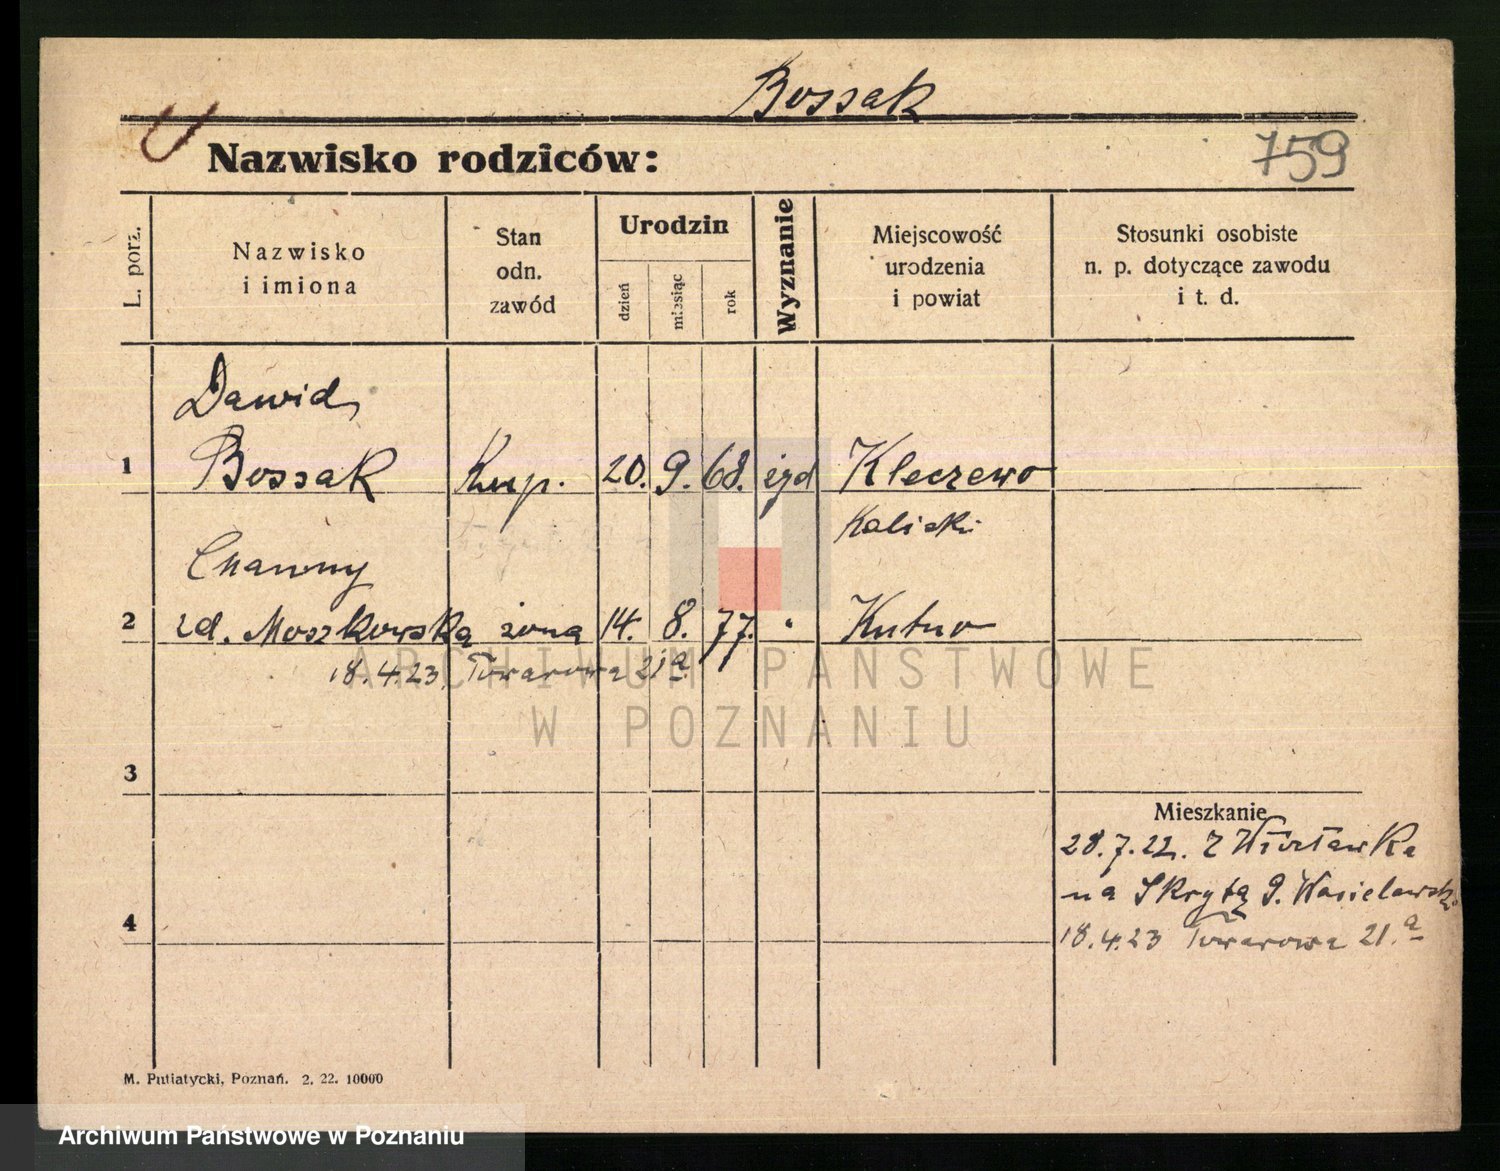 Bossak
759
Nazwisko rodziców:
L. porz.
Nazwisko
i imiona
Stan
odn.
zawód
Urodzin
dzień
miesiąc
rok
Wyznanie
Miejscowość
urodzenia
i powiat
Stosunki osobiste
n. p. dotyczące zawodu
i t. d.
Dawid,
1 Bossak Kup. 20. 9. 68. żyd Kleczewo
Kaliski
Chawny
2 zd. Moszkowską żona 14. 8. 77. " Kutno
18.4.23. Towarowa 21a
3
Mieszkanie
28.7.22. Z Włocławka
na Skrytą 9. Wasielewski
4
18.4.23 Towarowa 21.a
M. Putiatycki, Poznań. 2. 22. 10000
ARCHIWUM PAŃSTWOWE
W POZNANIU
Archiwum Państwowe w Poznaniu